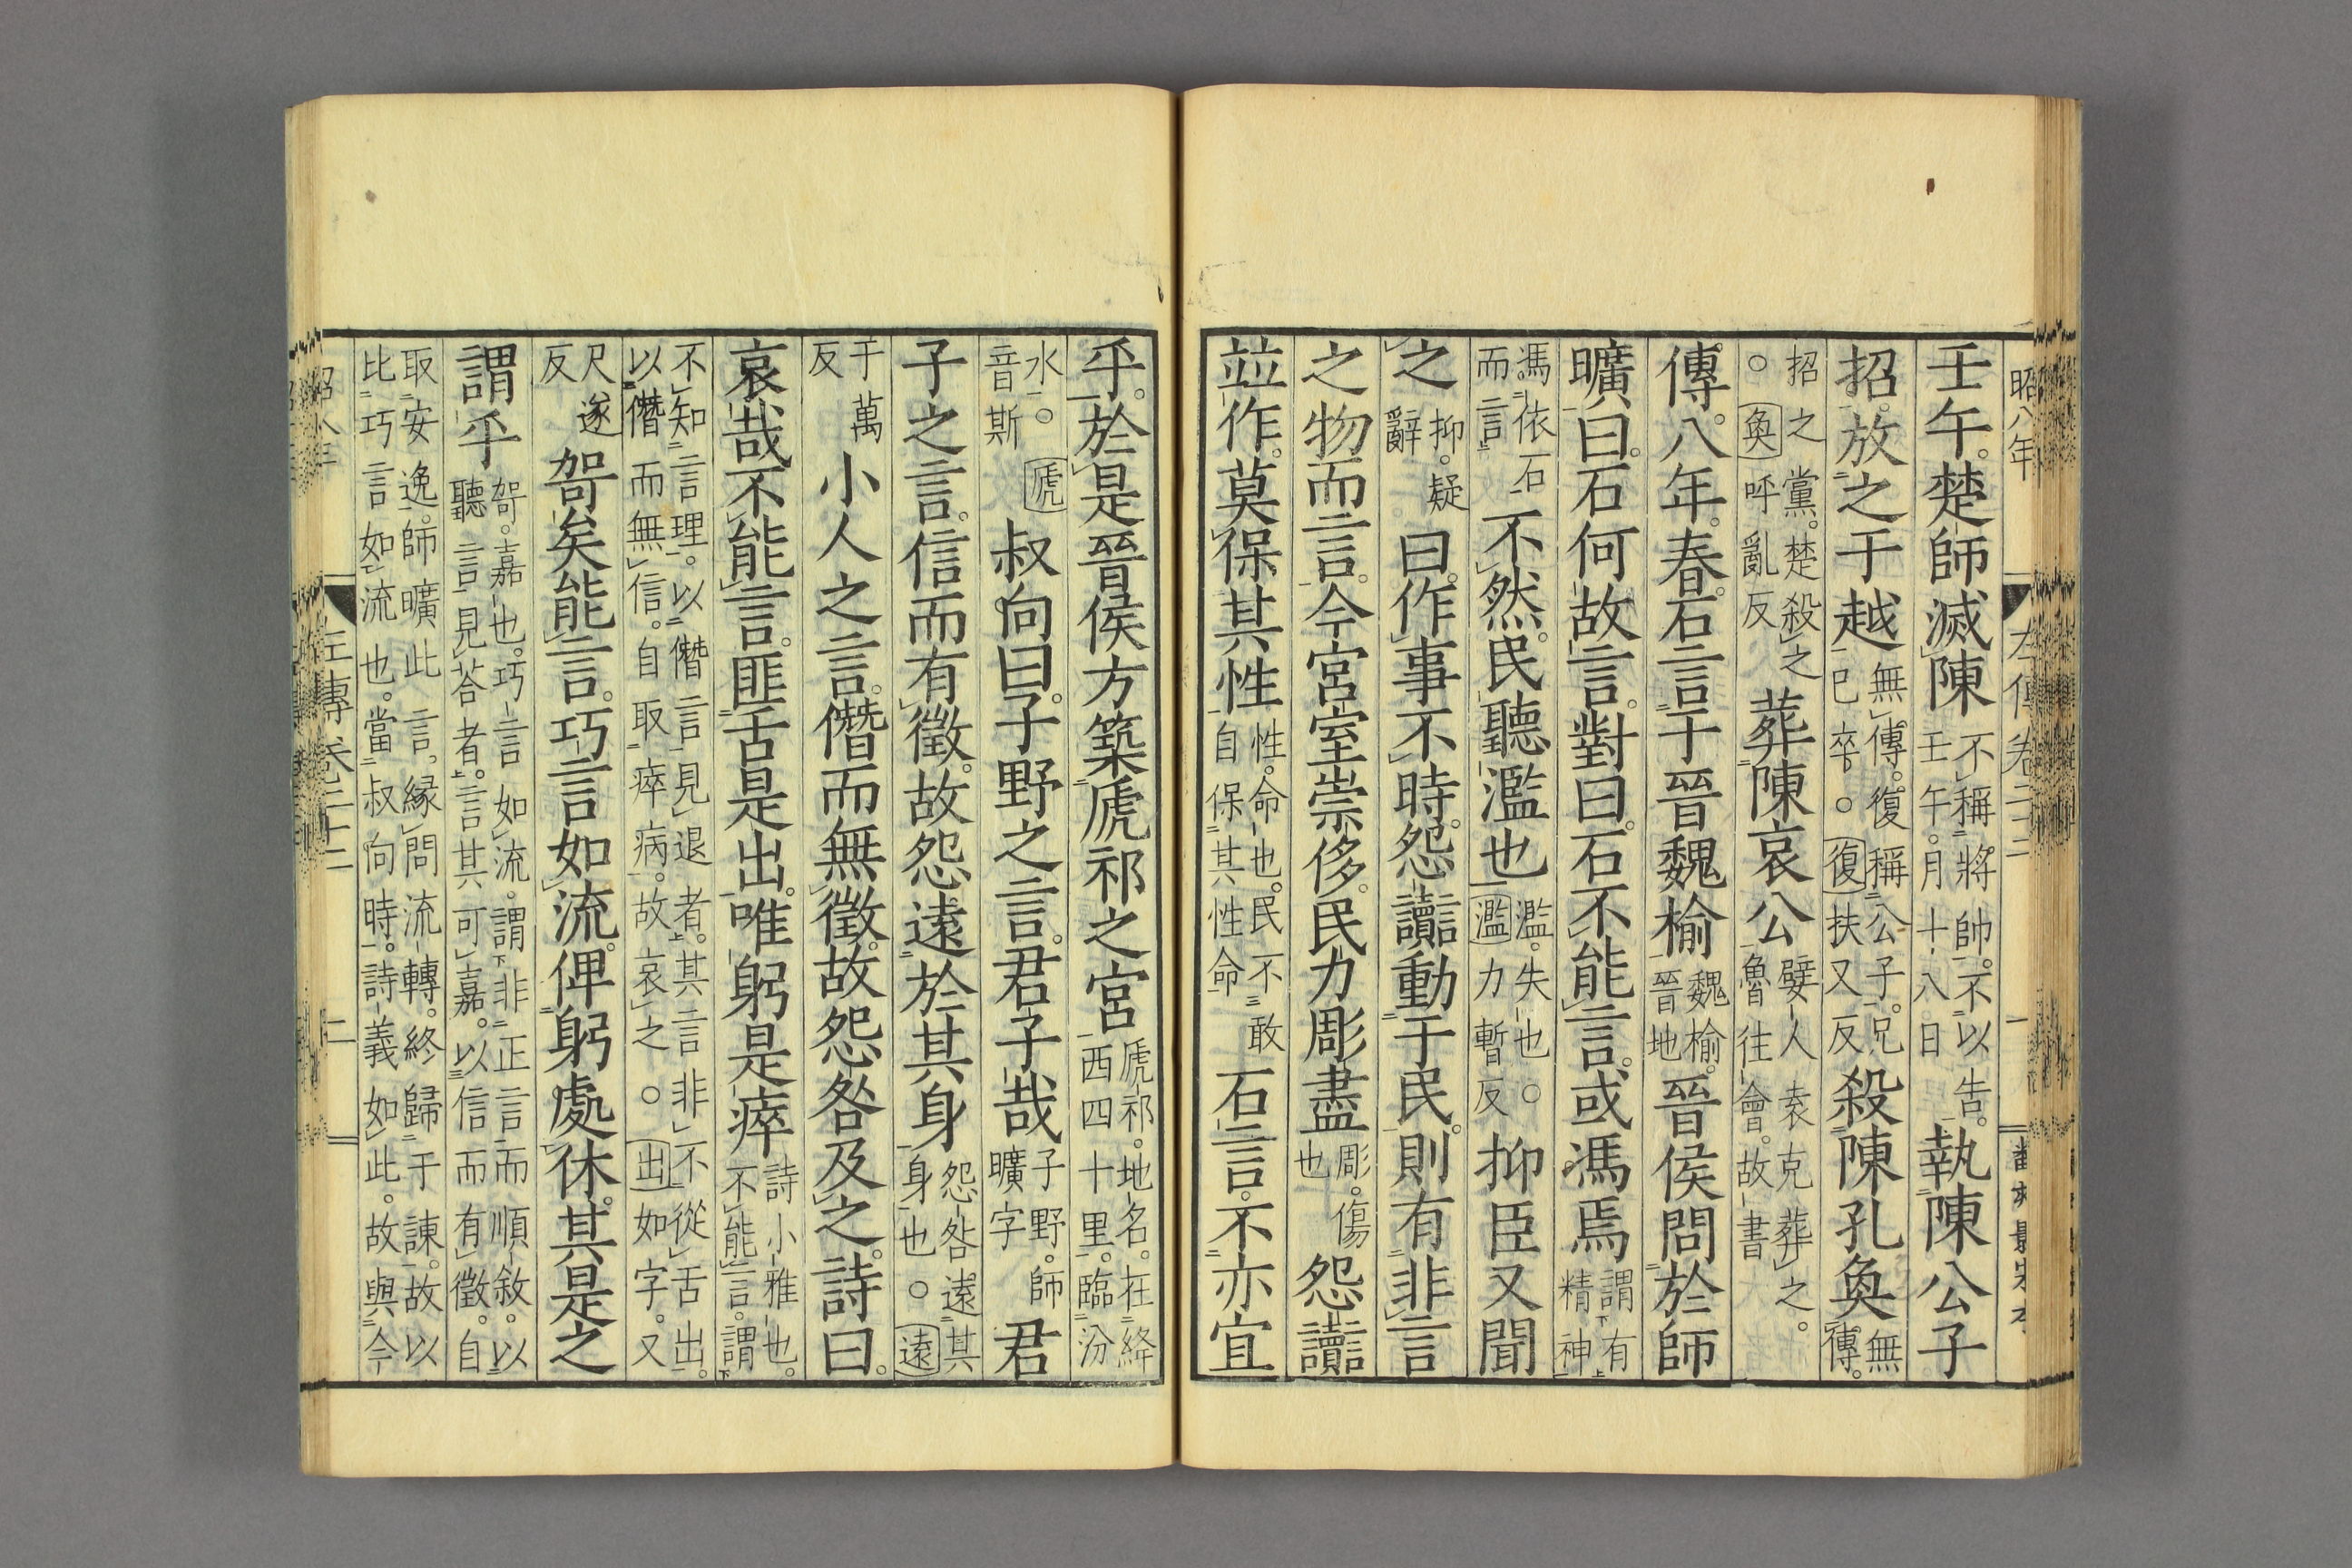 昭八年 左傳卷二十二 一
壬午。楚師滅陳不稱將帥。不以告。壬午。月十八日執陳公子
招。放之于越無傳。復稱公子。兄巳卒。○復扶又反殺陳孔奐無傳。
招之黨。楚殺之○奐呼亂反葬陳哀公嬖人袁克葬之。魯往會。故書
傳。八年。春。石言于晉魏榆魏榆。晉地晉侯問於師
曠。曰。石何故言。對曰。石不能言。或馮焉謂有精神
馮依石而言不然。民聽濫也濫。失也○濫力暫反抑臣又聞
之抑。疑辭曰。作事不時。怨讟動于民。則有非言
之物而言。今宮室崇侈。民力彫盡彫。傷也怨讟
竝作。莫保其性性。命也。民不敢自保其性命石言。不亦宜
乎。於是晉侯方築虒祁之宮虒祁。地名。在絳西四十里。臨汾
水。○虒音斯叔向曰。子野之言。君子哉子野。師曠字君
子之言。信而有徵。故怨遠於其身怨咎遠其身也○遠
于萬反小人之言。僭而無徵。故怨咎及之。詩曰。
哀哉不能言。匪舌是出。唯躬是瘁詩小雅也。不能言。謂
不知言理。以僭言見退者。其言非不從舌出。以僭而無信。自取瘁病。故哀之○出如字。又
尺遂反哿矣能言。巧言如流。俾躬處休。其是之
謂乎哿。嘉也。巧言如流。謂非正言而順敘。以聽言見荅者。言其可嘉。以信而有徵。自
取安逸。師曠此言。緣問流轉。終歸于諫。故以比巧言如流也。當叔向時。詩義如此。故與今
左傳卷二十二 二